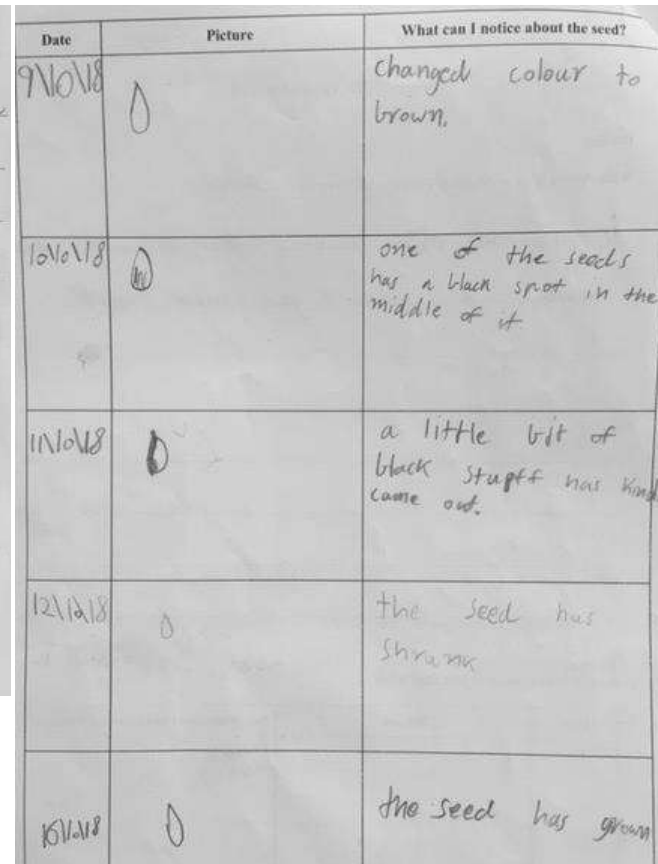 Date Picture What can I notice about the seed?
9\10\18 changed colour to
brown.
10\10\18 one of the seeds
has a black spot in the
middle of it
11\10\18 a little bit of
black stuff has kind
came out.
12\12\18 the seed has
shrunk
16\10\18 the seed has grown